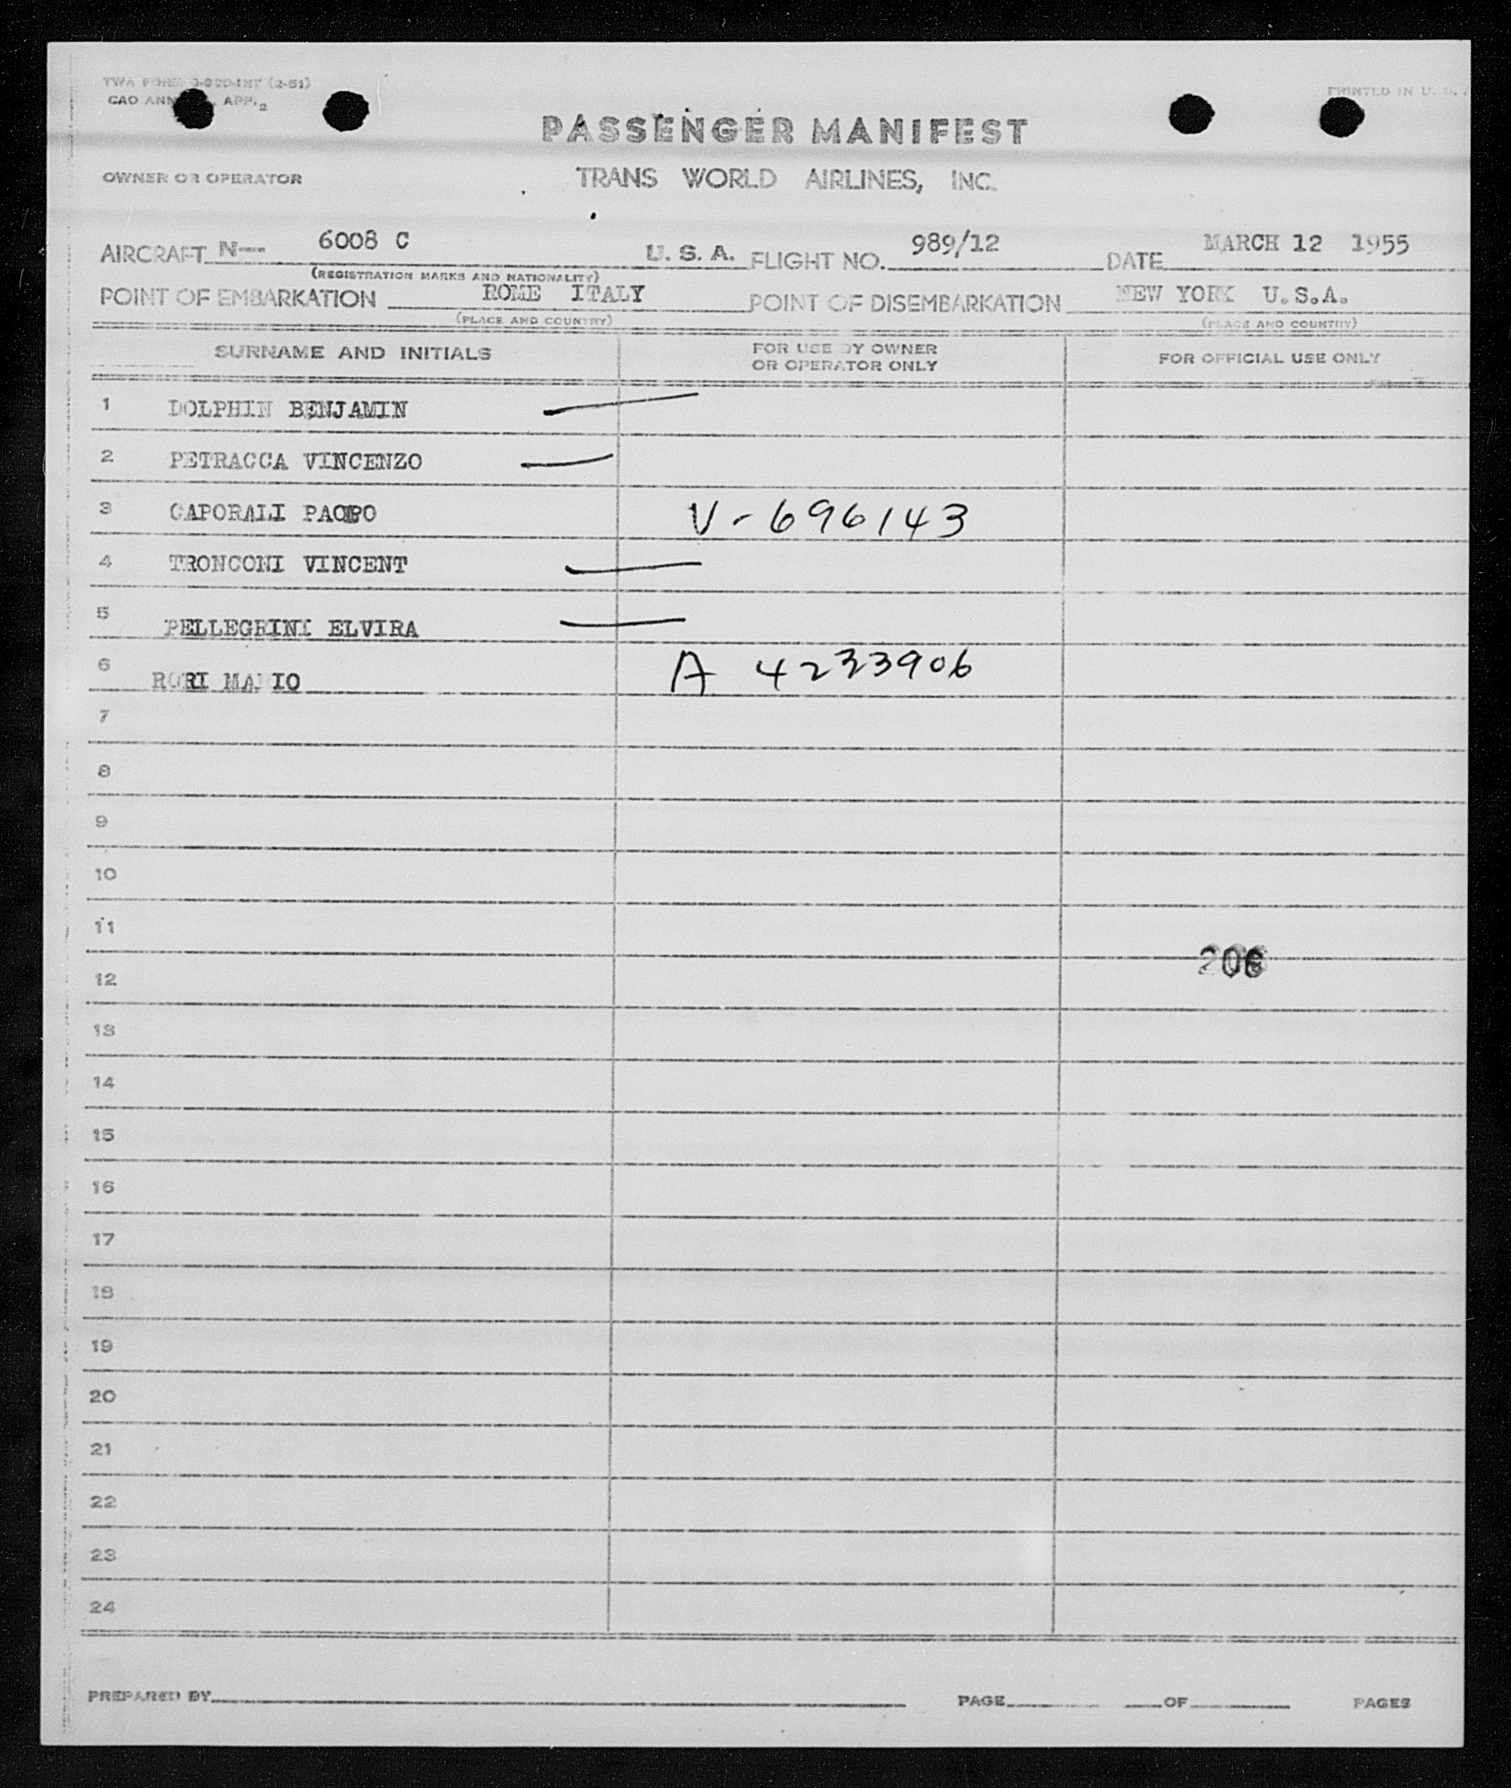 TWA FORM (2-51)
PRINTED IN U. S.
CAO ANN APP. 2
PASSENGER MANIFEST
OWNER OR OPERATOR TRANS WORLD AIRLINES, INC.
AIRCRAFT N--- 6008 C U. S. A. FLIGHT NO. 989/12 DATE MARCH 12 1955
(REGISTRATION MARKS AND NATIONALITY)
POINT OF EMBARKATION ROME ITALY POINT OF DISEMBARKATION NEW YORK U.S.A.
(PLACE AND COUNTRY) (PLACE AND COUNTRY)
SURNAME AND INITIALS FOR USE BY OWNER OR OPERATOR ONLY FOR OFFICIAL USE ONLY
1 DOLPHIN BENJAMIN
2 PETRACCA VINCENZO
3 CAPORALI V-696143
4 TRONCONI VINCENT
5 PELLEGRINI ELVIRA
6 RORI MARIO A 4233906
7
8
9
10
11
206
12
13
14
15
16
17
18
19
20
21
22
23
24
PREPARED BY PAGE OF PAGES